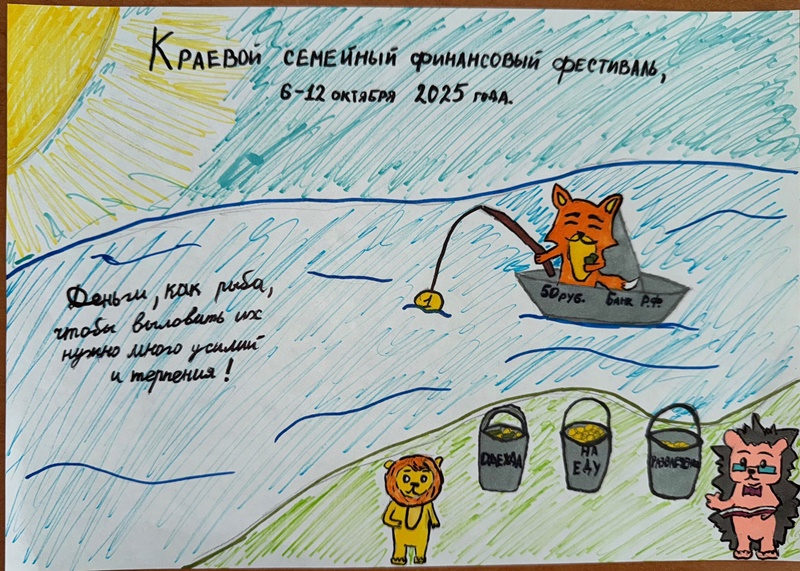 Краевой семейный финансовый фестиваль,
6-12 октября 2025 года.
Деньги, как рыба,
чтобы выловить их
нужно много усилий
и терпения!
1
50 руб. Банк Р.Ф.
ОДЕЖДА
НА
ЕДУ
РАЗВЛЕЧЕНИЯ